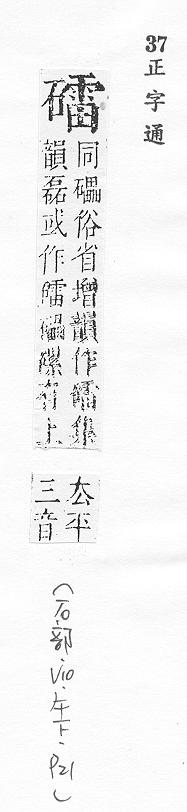 37 正字通
礌
同礧俗省增韻作集
韻磊或作磥有上
厺平
三音
(石部.V10.左下.P21)